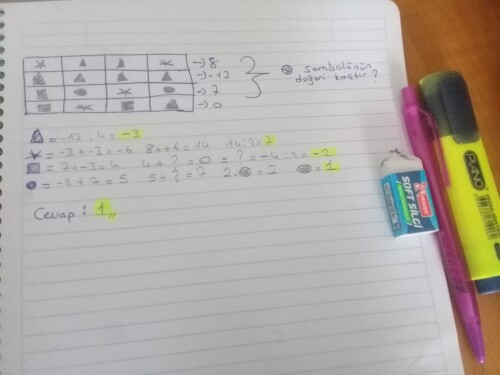 → 8
→ -12
→ 7
→ 0
sembolünün
değeri kaçtır ?
= -12 : 4 = -3
= -3 + -3 = -6 8 + +6 = 14 14 : 2 = 7
= 7 + -3 = 4 4 + ? = 0 = ? = -4 : 2 = -2
= -2 + 7 = 5 5 + ? = 7 2. = 2 = 1
Cevap : 1,,
SOFT SILGI